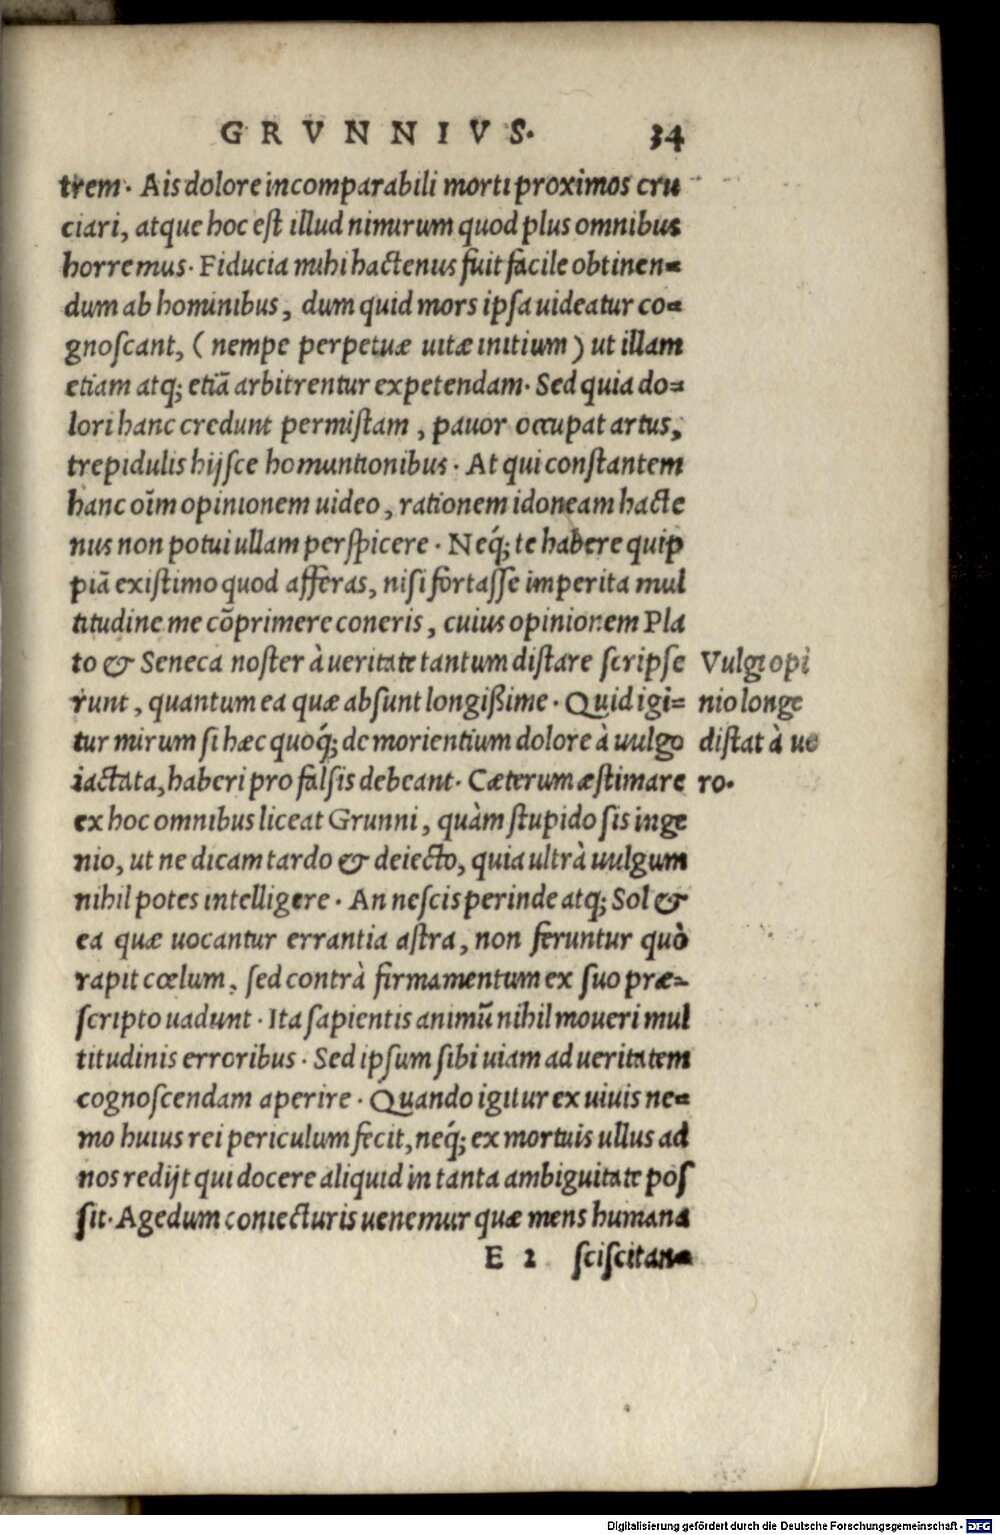 GRVNNIVS. 34
trem. Ais dolore incomparabili morti proximos cru
ciari, atque hoc est illud nimirum quod plus omnibus
horremus. Fiducia mihi hactenus fuit facile obtinen=
dum ab hominibus, dum quid mors ipsa uideatur co=
gnoscant, (nempe perpetuæ uitæ initium) ut illam
etiam atq; etiã arbitrentur expetendam. Sed quia do=
lori hanc credunt permistam, pauor occupat artus,
trepidulis hijsce homuntionibus. At qui constantem
hanc oĩm opinionem uideo, rationem idoneam hacte
nus non potui ullam perspicere. Neq́; te habere quip
piã existimo quod afferas, nisi fortasse imperita mul
titudine me cõprimere coneris, cuius opinionem Pla
to & Seneca noster à ueritate tantum distare scripse
runt, quantum ea quæ absunt longißime. Quid igi=
tur mirum si hæc quoq́; de morientium dolore à uulgo
iactata, haberi pro falsis debeant. Cæterum æstimare
ex hoc omnibus liceat Grunni, quàm stupido sis inge
nio, ut ne dicam tardo & deiecto, quia ultrà uulgum
nihil potes intelligere. An nescis perinde atq; Sol &
ea quæ uocantur errantia astra, non feruntur quò
rapit cœlum, sed contrà firmamentum ex suo præ=
scripto uadunt. Ita sapientis animũ nihil moueri mul
titudinis erroribus. Sed ipsum sibi uiam ad ueritatem
cognoscendam aperire. Quando igitur ex uiuis ne=
mo huius rei periculum fecit, neq́; ex mortuis ullus ad
nos redijt qui docere aliquid in tanta ambiguitate pos
sit. Agedum coniecturis uenemur quæ mens humana
E 2 sciscitan=
Vulgi opi
nio longe
distat à ue
ro.
Digitalisierung gefördert durch die Deutsche Forschungsgemeinschaft - DFG